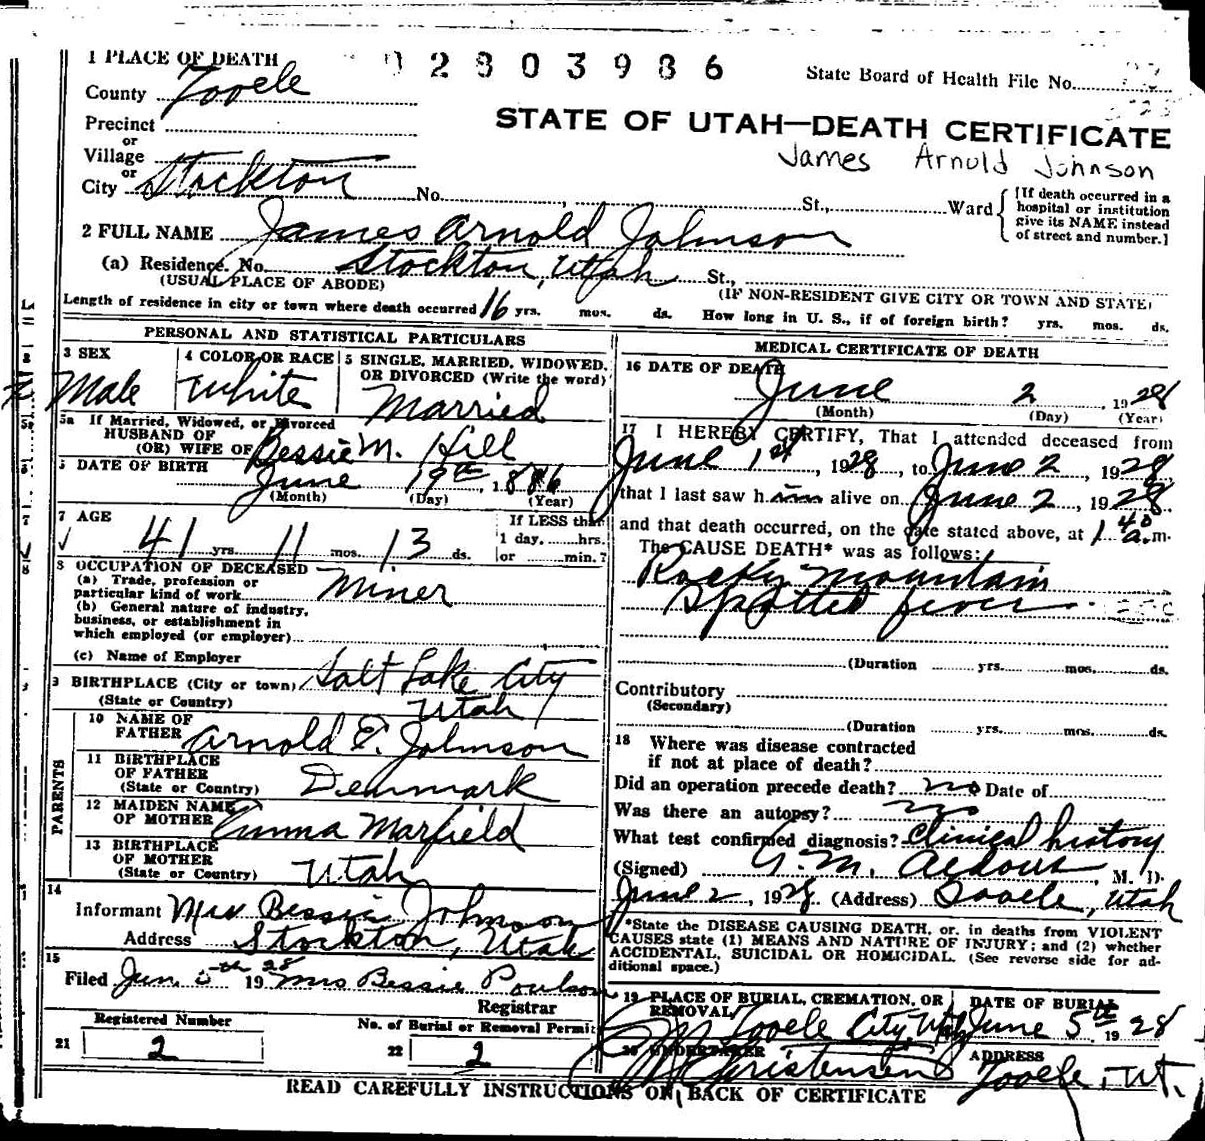 1 PLACE OF DEATH
0 2803986
State Board of Health File No.
County Tooele
STATE OF UTAH—DEATH CERTIFICATE
Precinct
or
Village
James Arnold Johnson
or
City Stockton No. , St., Ward
[If death occurred in a hospital or institution give its NAME instead of street and number.]
2 FULL NAME James Arnold Johnson
(a) Residence. No. Stockton, Utah St.,
(USUAL PLACE OF ABODE)
(IF NON-RESIDENT GIVE CITY OR TOWN AND STATE)
Length of residence in city or town where death occurred 16 yrs. mos. ds. How long in U. S., if of foreign birth? yrs. mos. ds.
PERSONAL AND STATISTICAL PARTICULARS
3 SEX
Male
4 COLOR OR RACE
White
5 SINGLE, MARRIED, WIDOWED, OR DIVORCED (Write the word)
Married
5a If Married, Widowed, or Divorced
HUSBAND OF
(OR) WIFE OF Bessie M. Hill
DATE OF BIRTH
June 19th, 1886
(Month) (Day) (Year)
7 AGE
41 yrs. 11 mos. 13 ds.
If LESS than
1 day, hrs.
or min.?
8 OCCUPATION OF DECEASED
(a) Trade, profession or
particular kind of work Miner
(b) General nature of industry,
business, or establishment in
which employed (or employer)
(c) Name of Employer
BIRTHPLACE (City or town) Salt Lake City
(State or Country) Utah
PARENTS
10 NAME OF
FATHER Arnold E. Johnson
11 BIRTHPLACE
OF FATHER
(State or Country) Denmark
12 MAIDEN NAME
OF MOTHER Emma Marfield
13 BIRTHPLACE
OF MOTHER
(State or Country) Utah
14
Informant Mrs Bessie Johnson
Address Stockton, Utah
15
Filed Jun. 5th 1928 Mrs Bessie Poulson
Registrar
Registered Number
21 2
No. of Burial or Removal Permit
22 2
MEDICAL CERTIFICATE OF DEATH
16 DATE OF DEATH
June 2, 1928
(Month) (Day) (Year)
17 I HEREBY CERTIFY, That I attended deceased from
June 1st, 1928, to June 2, 1928
that I last saw him alive on June 2, 1928
and that death occurred, on the date stated above, at 1 40 a.m.
The CAUSE DEATH* was as follows:
Rocky Mountain
Spotted fever
(Duration yrs. mos. ds.
Contributory
(Secondary)
(Duration yrs. mos. ds.
18 Where was disease contracted
if not at place of death?
Did an operation precede death? no Date of
Was there an autopsy? no
What test confirmed diagnosis? Clinical history
(Signed) G. M. Aldous, M. D.
June 2, 1928. (Address) Tooele, Utah
*State the DISEASE CAUSING DEATH, or, in deaths from VIOLENT
CAUSES state (1) MEANS AND NATURE OF INJURY; and (2) whether
ACCIDENTAL, SUICIDAL OR HOMICIDAL. (See reverse side for ad-
ditional space.)
19 PLACE OF BURIAL, CREMATION, OR
REMOVAL
Tooele City, Utah
DATE OF BURIAL
June 5th 1928
20 UNDERTAKER
Christensen
ADDRESS
Tooele, Ut.
READ CAREFULLY INSTRUCTIONS ON BACK OF CERTIFICATE